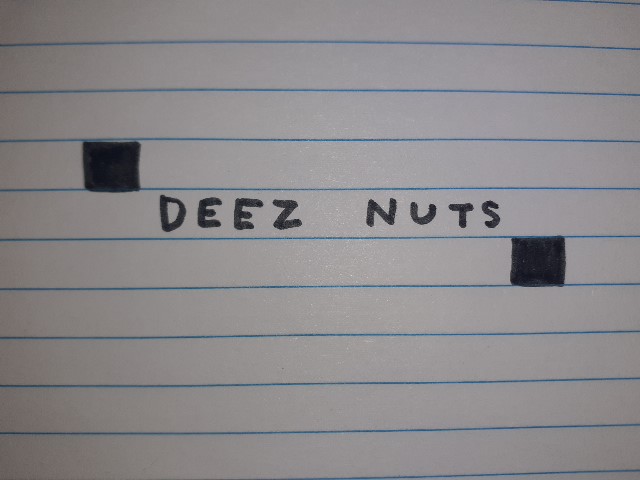 DEEZ NUTS